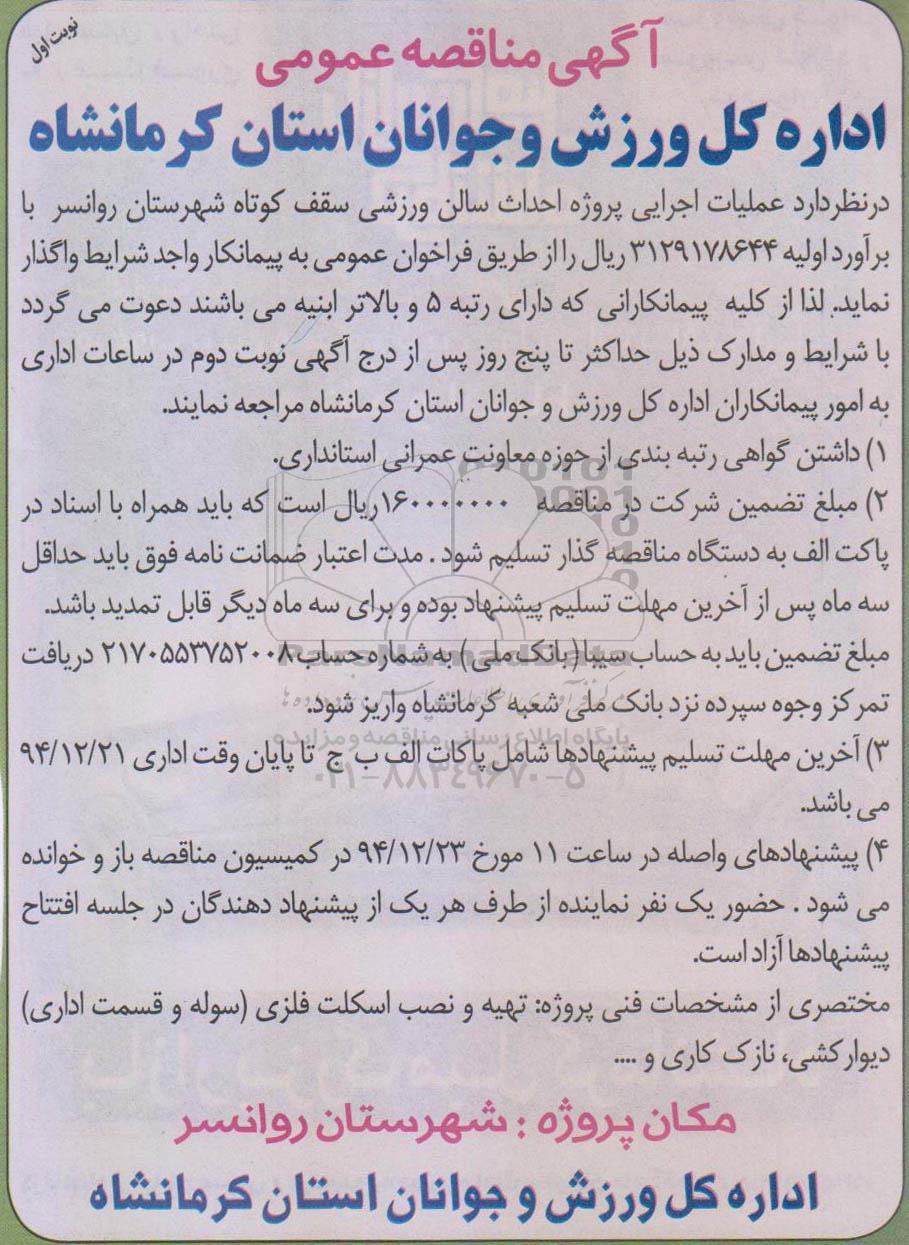 نوبت اول
آگهی مناقصه عمومی
اداره کل ورزش و جوانان استان کرمانشاه
درنظردارد عملیات اجرایی پروژه احداث سالن ورزشی سقف کوتاه شهرستان روانسر با
برآورد اولیه ۳۱۲۹۱۷۸۶۴۴ ریال را از طریق فراخوان عمومی به پیمانکار واجد شرایط واگذار
نماید. لذا از کلیه پیمانکارانی که دارای رتبه ۵ و بالاتر ابنیه می باشند دعوت می گردد
با شرایط و مدارک ذیل حداکثر تا پنج روز پس از درج آگهی نوبت دوم در ساعات اداری
به امور پیمانکاران اداره کل ورزش و جوانان استان کرمانشاه مراجعه نمایند.
۱) داشتن گواهی رتبه بندی از حوزه معاونت عمرانی استانداری.
۲) مبلغ تضمین شرکت در مناقصه ۱۶۰۰۰۰۰۰۰ ریال است که باید همراه با اسناد در
پاکت الف به دستگاه مناقصه گذار تسلیم شود . مدت اعتبار ضمانت نامه فوق باید حداقل
سه ماه پس از آخرین مهلت تسلیم پیشنهاد بوده و برای سه ماه دیگر قابل تمدید باشد.
مبلغ تضمین باید به حساب سیبا (بانک ملی) به شماره حساب ۲۱۷۰۵۵۳۷۵۲۰۰۸ دریافت
تمرکز وجوه سپرده نزد بانک ملی شعبه کرمانشاه واریز شود.
ParsNamadData
پایگاه اطلاع رسانی مناقصه و مزایده
۳) آخرین مهلت تسلیم پیشنهادها شامل پاکات الف ب ج تا پایان وقت اداری ۹۴/۱۲/۲۱
۰۲۱-۸۸۳۴۹۶۷۰-۵
می باشد.
۴) پیشنهادهای واصله در ساعت ۱۱ مورخ ۹۴/۱۲/۲۳ در کمیسیون مناقصه باز و خوانده
می شود . حضور یک نفر نماینده از طرف هر یک از پیشنهاد دهندگان در جلسه افتتاح
پیشنهادها آزاد است.
مختصری از مشخصات فنی پروژه: تهیه و نصب اسکلت فلزی (سوله و قسمت اداری)
دیوارکشی، نازک کاری و ....
مکان پروژه : شهرستان روانسر
اداره کل ورزش و جوانان استان کرمانشاه